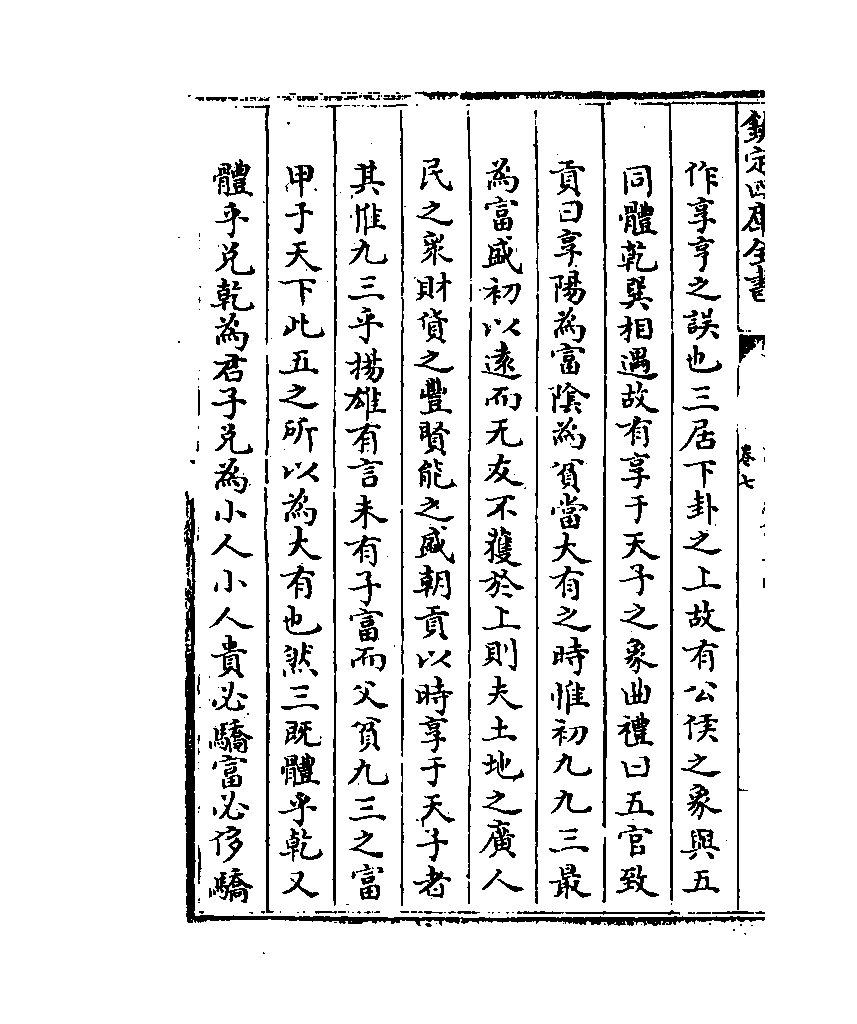 欽定四庫全書
卷七
作享亨之誤也三居下卦之上故有公侯之象與五
同體乾巽相遇故有享于天子之象曲禮曰五官致
貢曰享陽為富陰為貧當大有之時惟初九九三最
為富盛初以遠而无友不獲於上則夫土地之廣人
民之衆財貨之豐賢能之盛朝貢以時享于天子者
其惟九三乎揚雄有言未有子富而父貧九三之富
甲于天下此五之所以為大有也然三既體乎乾又
體乎兑乾為君子兑為小人小人貴必驕富必侈驕